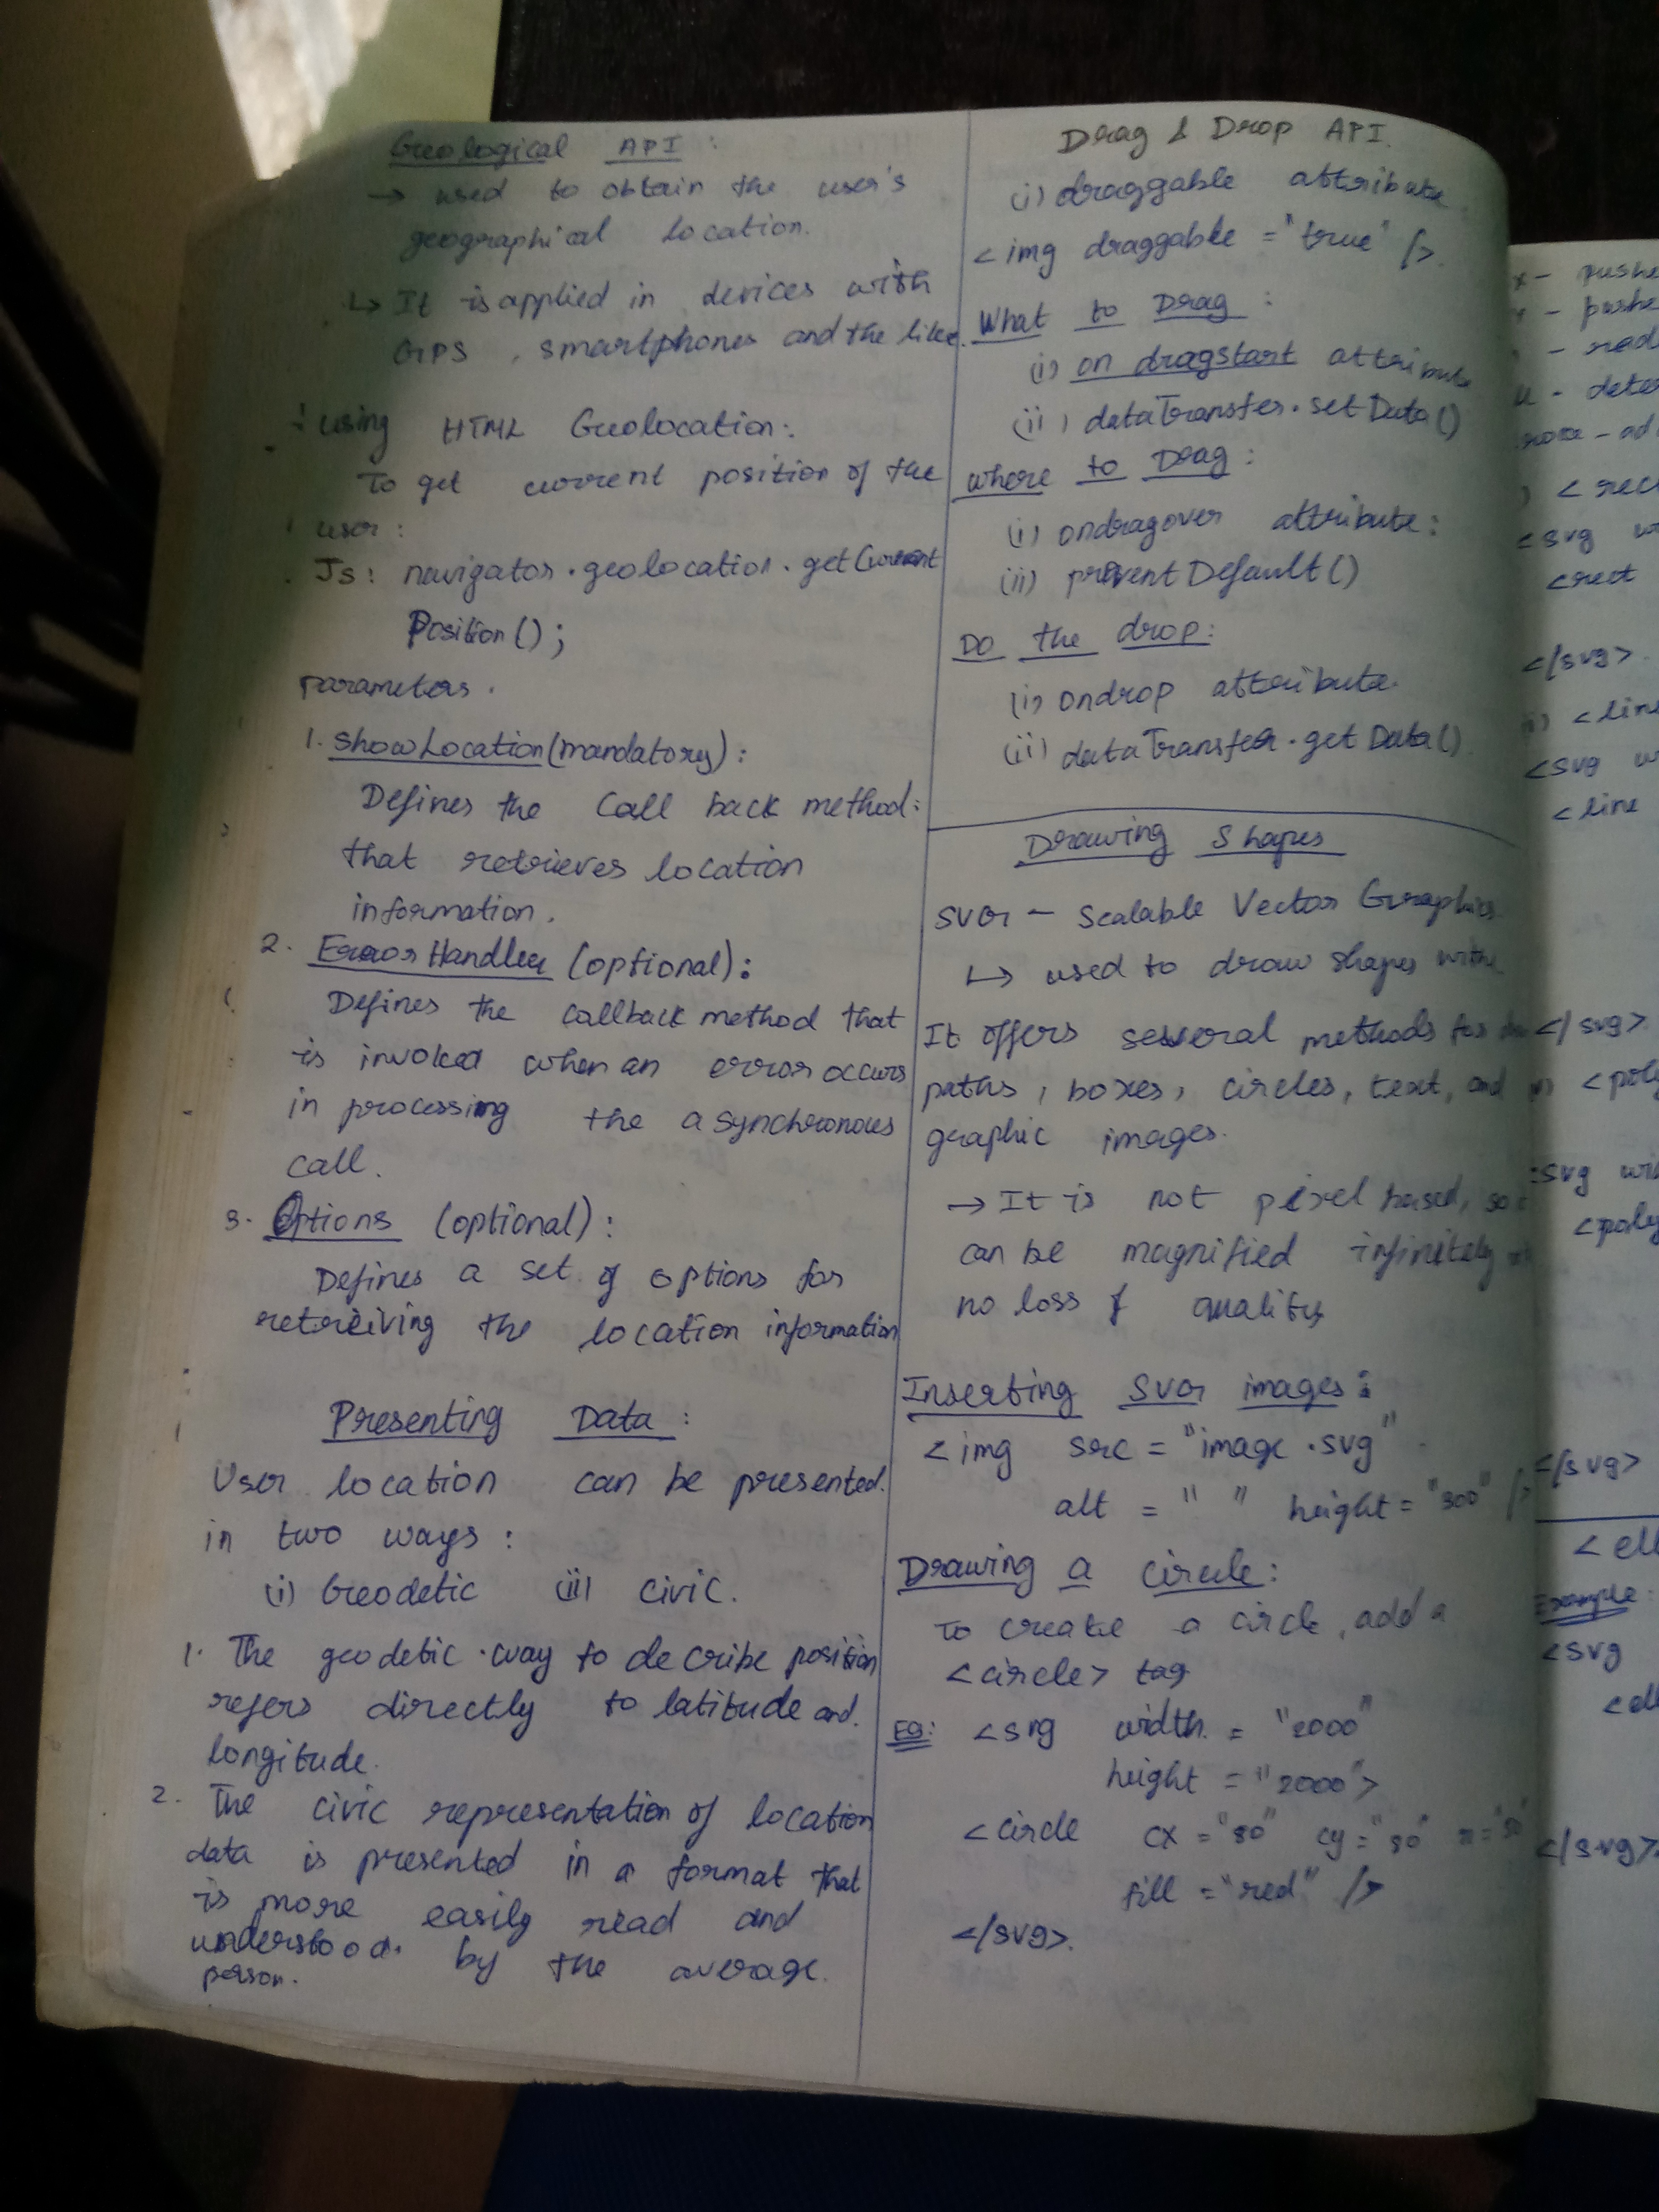 Geological API :
→ used to obtain the user's
geographical location.
↳ It is applied in devices with
GPS, smartphones and the like.
using HTML Geolocation:
To get current position of the
user :
Js: navigator.geolocation.getCurrent
Position();
parameters.
1. showLocation (mandatory) :
Defines the call back method:
that retrieves location
information.
2. Error Handler (optional) :
Defines the callback method that
is invoked when an error occurs
in processing the asynchronous
call.
3. Options (optional) :
Defines a set of options for
retreiving the location information
Presenting Data :
User location can be presented.
in two ways :
(i) Geodetic (ii) civic.
1. The geodetic way to decribe position
refers directly to latitude and.
longitude.
2. The civic representation of location
data is presented in a format that
is more easily read and
understood. by the average.
person.
Drag & Drop API.
(i) draggable attribute
<img draggable = "true" />.
What to Drag :
(i) on dragstart attribute
(ii) dataTransfer.setData()
where to Drag :
(i) ondragover attribute :
(ii) preventDefault()
Do the drop :
(i) ondrop attribute.
(ii) dataTransfer.getData()
Drawing Shapes
SVG - Scalable Vector Graphics
↳ used to draw shapes with
It offers several methods for
paths, boxes, circles, text, and
graphic images.
→ It is not pixel based, so
can be magnified infinitely
no loss of quality
Inserting SVG images :
<img src = "image.svg"
alt = " " height = "300" />
Drawing a circle :
To create a circle, add a
<circle> tag
EG: <svg width. = "2000"
height = "2000">
<circle cx = "80" cy = "80"
fill = "red" />
</svg>.
- pushe
- pushe
<svg
<rect
</svg>.
<line
<svg
<line
</svg>.
<poly
svg wi
<poly
</svg>
<ell
Example :
<svg
<ell
</svg>